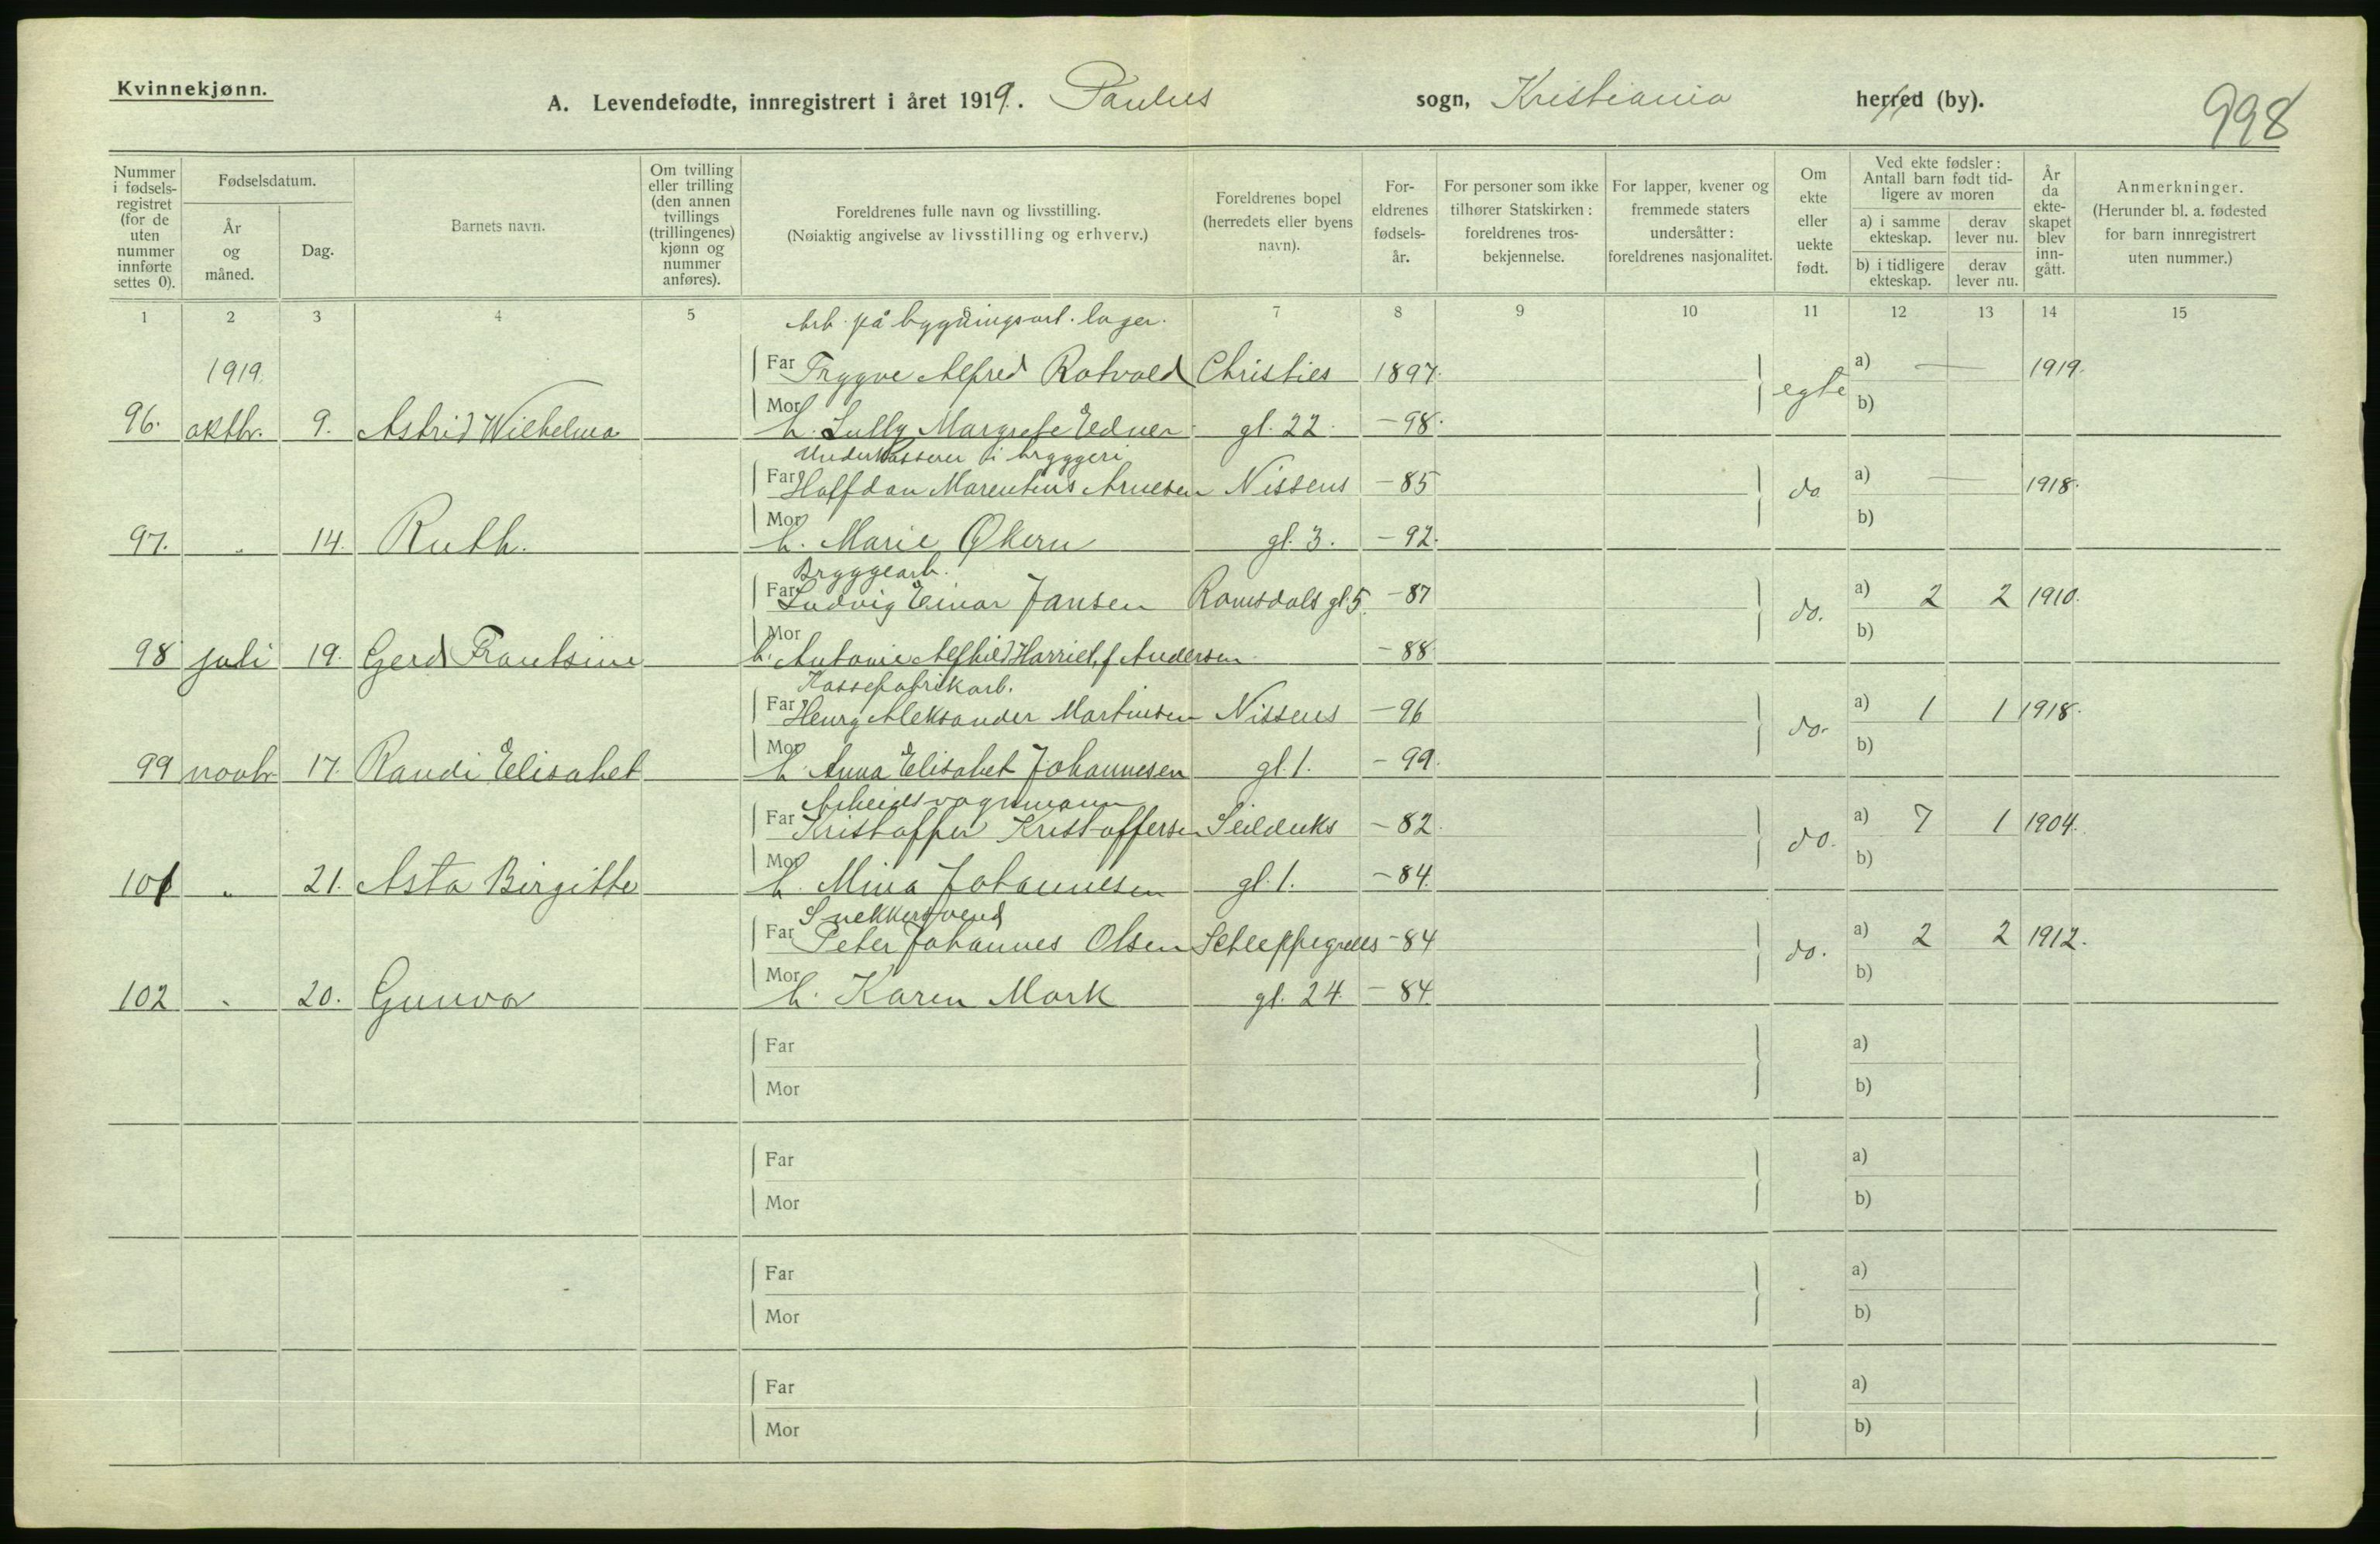 Kvinnekjønn.
A. Levendefødte, innregistrert i året 1919. Paulus sogn, Kristiania herred (by). 998
Nummer i fødselsregistret (for de uten nummer innførte settes 0).
Fødselsdatum.
År og måned.
Dag.
Barnets navn.
Om tvilling eller trilling (den annen tvillings (trillingenes) kjønn og nummer anføres).
Foreldrenes fulle navn og livsstilling.
(Nøiaktig angivelse av livsstilling og erhverv.)
Foreldrenes bopel (herredets eller byens navn).
Foreldrenes fødselsår.
For personer som ikke tilhører Statskirken: foreldrenes trosbekjennelse.
For lapper, kvener og fremmede staters undersåtter: foreldrenes nasjonalitet.
Om ekte eller uekte født.
Ved ekte fødsler: Antall barn født tidligere av moren
a) i samme ekteskap. derav lever nu.
b) i tidligere ekteskap. derav lever nu.
År da ekteskapet blev inngått.
Anmerkninger.
(Herunder bl. a. fødested for barn innregistrert uten nummer.)
1 2 3 4 5 6 7 8 9 10 11 12 13 14 15
Arb. på bygningsart. lager.
1919 Far Trygve Alfred Rotvold Christies 1897. egte a) — 1919.
96. oktbr. 9. Astrid Wilhelma Mor h. Lully Margrete Edner gt. 22. -98. b)
Underkasserer i bryggeri
Far Halfdan Marentius Arnesen Nissens -85 do a) — 1918.
97. " 14. Ruth. Mor h. Marie Økern gt. 3. -92. b)
Bryggearb.
Far Ludvig Einar Jansen Romsdals gt. 5. -87 do. a) 2 2 1910.
98 juli 19. Gerd Frantsine Mor h. Antonie Alfhild Harriet, f Andersen -88 b)
Kassefabrikarb.
Far Henry Aleksander Martinsen Nissens -96 do. a) 1 1 1918.
99 novbr 17. Randi Elisabet Mor h. Anna Elisabet Johannesen gt. 1. -99. b)
Arbeidsvognmann
Far Kristoffer Kristoffersen Seilduks -82. do. a) 7 1 1904.
101 " 21. Asta Birgitte Mor h. Mina Johannesen gt. 1. -84. b)
Snekkersvend
Far Peter Johannes Olsen Schleppegrells -84 do. a) 2 2 1912.
102 " 20. Gunvor Mor h. Karen Mork gt. 24. -84. b)
Far a)
Mor b)
Far a)
Mor b)
Far a)
Mor b)
Far a)
Mor b)